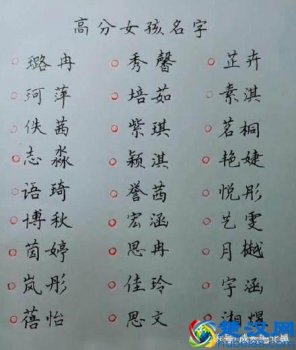 高分女孩名字
璐冉 秀馨 芷卉
珂萍 培茹 素淇
佚茜 紫琪 茗桐
志淼 颖淇 艳婕
语琦 誉茜 悦彤
博秋 宏涵 艺雯
茵婷 思冉 月樾
岚彤 佳玲 宇涵
蓓怡 思文